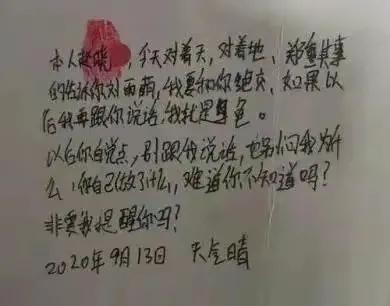 本人赵晓，今天对着天，对着地，郑重其事
的告诉你刘雨萌，我要和你绝交，如果以
后我再跟你说话，我就是色。
以后你自觉点，别跟我说话，也别问我为什
么！你自己做了什么，难道你不知道吗？
非要我提醒你吗？
2020年9月13日 天气晴